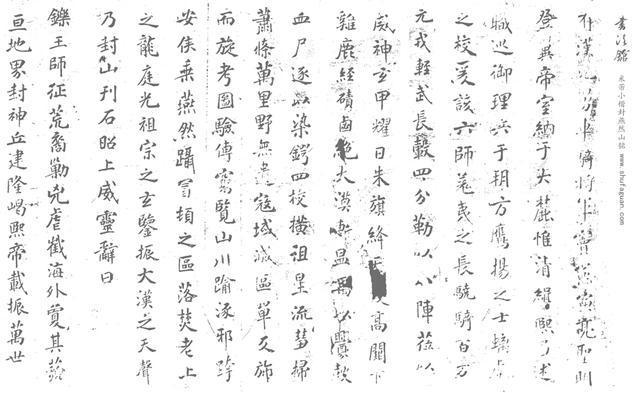 書法館
米芾小楷封燕然山銘 www.shufaguan.com
有漢將軍竇憲聖明
登異帝室納于大麓惟清緝熙乃述
職巡御理兵于朔方鷹揚之士螭虎
之校爰該六師夷之長驍騎百万
元戎輕武長轂四分勒以八陣莅以
威神玄甲耀日朱旗絳高闕下
雞鹿經磧鹵絕大漠斬温禺以釁鼓
血尸逐以染鍔四校橫徂星流彗掃
蕭條萬里野無遺寇域滅區單反斾
而旋考圖驗傳窮覽山川踰涿邪跨
安侯乘燕然躡冒頓之區落焚老上
之龍庭光祖宗之玄鑒振大漢之天聲
乃封山刊石昭上威靈辭曰
鑠王師征荒裔勦兇虐截海外敻其邈
亘地界封神丘建隆嵑熙帝載振萬世